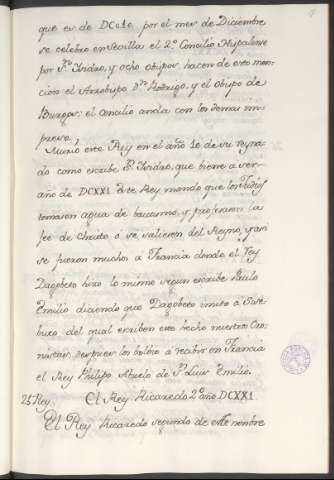 que es de DC e 10. por el mes de Diciembre
se celebro en Sevilla el 2.º Concilio Hispalense
por S.n Isidro, y ocho obispos. hacen de esto men-
cion el Arzobispo D.n Rodrigo, y el obispo de
Burgos: el concilio anda con los demas im-
preso.
Murió este Rey en el año 10 de su reyna-
do como escribe S.n Isidro, que biene a ser
año de DCXXI. este Rey mando que los Judios
tomasen agua de bautismo, y profesaren la
fee de Christo ó se saliesen del Reyno, y asi
se fueron muchos a Francia donde el Rey
Dagoberto hizo lo mismo segun escribe Paulo
Emilio diciendo que Dagoberto imito a Sise-
buto del qual escriben este hecho nuestros Co-
ronistas, despues los bolbio á recibir en Francia
el Rey Philipo Abuelo de S. Luis Emilio.
25 Rey. El Rey Ricaredo 2.º año DCXXI.
El Rey Ricaredo segundo de este nombre